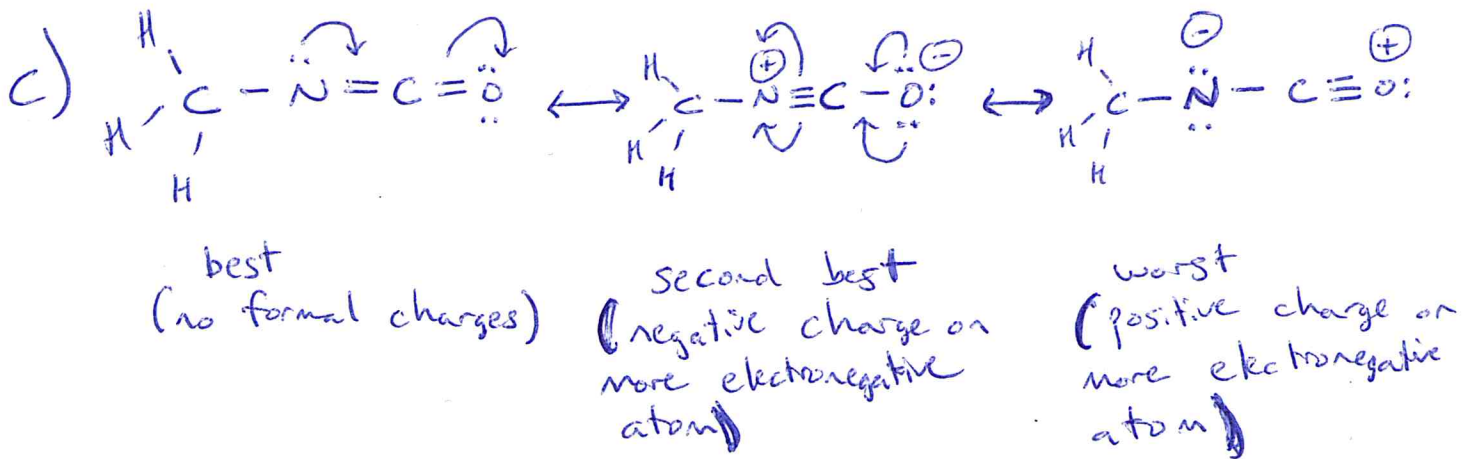 c)
H
H
H
C - N̈ = C = Ö
⟷
H
H
H
C - N ≡ C - Ö:
⊕
⊖
⟷
H
H
H
C - N̈ - C ≡ O:
⊖
⊕
best
(no formal charges)
second best
(negative charge on
more electronegative
atom)
worst
(positive charge on
more electronegative
atom)